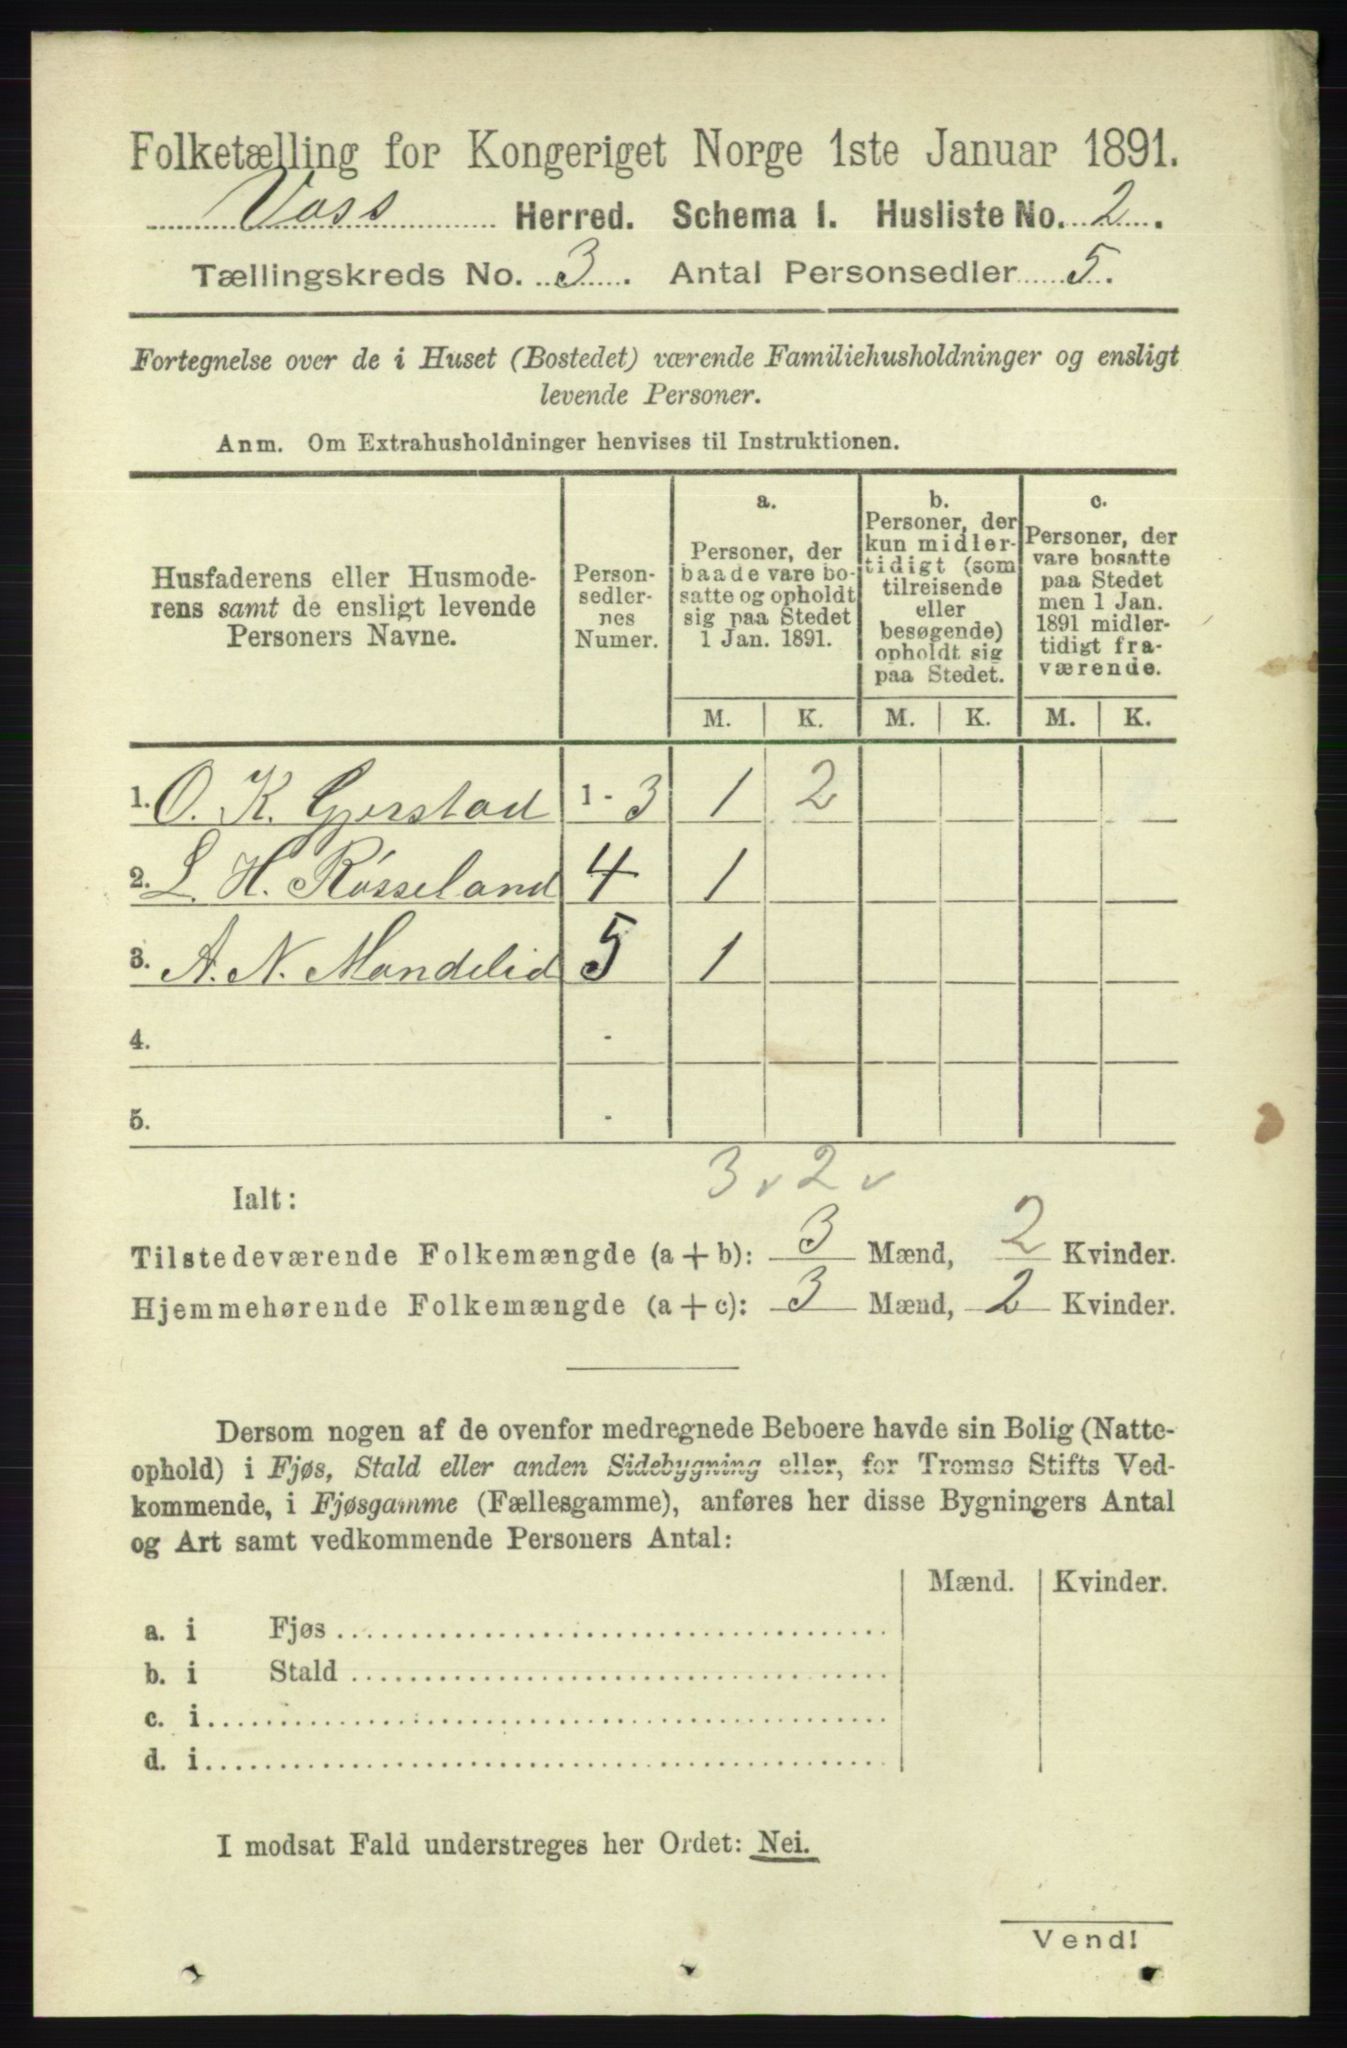 Folketælling for Kongeriget Norge 1ste Januar 1891.
Voss Herred. Schema I. Husliste No. 2.
Tællingskreds No. 3. Antal Personsedler 5.
Fortegnelse over de i Huset (Bostedet) værende Familiehusholdninger og ensligt
levende Personer.
Anm. Om Extrahusholdninger henvises til Instruktionen.
Husfaderens eller Husmode-
rens samt de ensligt levende
Personers Navne.
Person-
sedler-
nes
Numer.
a.
Personer, der
baade vare bo-
satte og opholdt
sig paa Stedet
1 Jan. 1891.
b.
Personer, der
kun midler-
tidigt (som
tilreisende
eller
besøgende)
opholdt sig
paa Stedet.
c.
Personer, der
vare bosatte
paa Stedet
men 1 Jan.
1891 midler-
tidigt fra-
værende.
M. K. M. K. M. K.
1. O. K. Gjerstad 1 - 3 1 2
2. L. H. Røsseland 4 1
3. A. N. Mandelid 5 1
4. -
5. -
3 v 2 v
Ialt:
Tilstedeværende Folkemængde (a + b): 3 Mænd, 2 Kvinder.
Hjemmehørende Folkemængde (a + c): 3 Mænd, 2 Kvinder.
Dersom nogen af de ovenfor medregnede Beboere havde sin Bolig (Natte-
ophold) i Fjøs, Stald eller anden Sidebygning eller, for Tromsø Stifts Ved-
kommende, i Fjøsgamme (Fællesgamme), anføres her disse Bygningers Antal
og Art samt vedkommende Personers Antal:
Mænd. Kvinder.
a. i Fjøs
b. i Stald
c. i
d. i
I modsat Fald understreges her Ordet: Nei.
Vend!